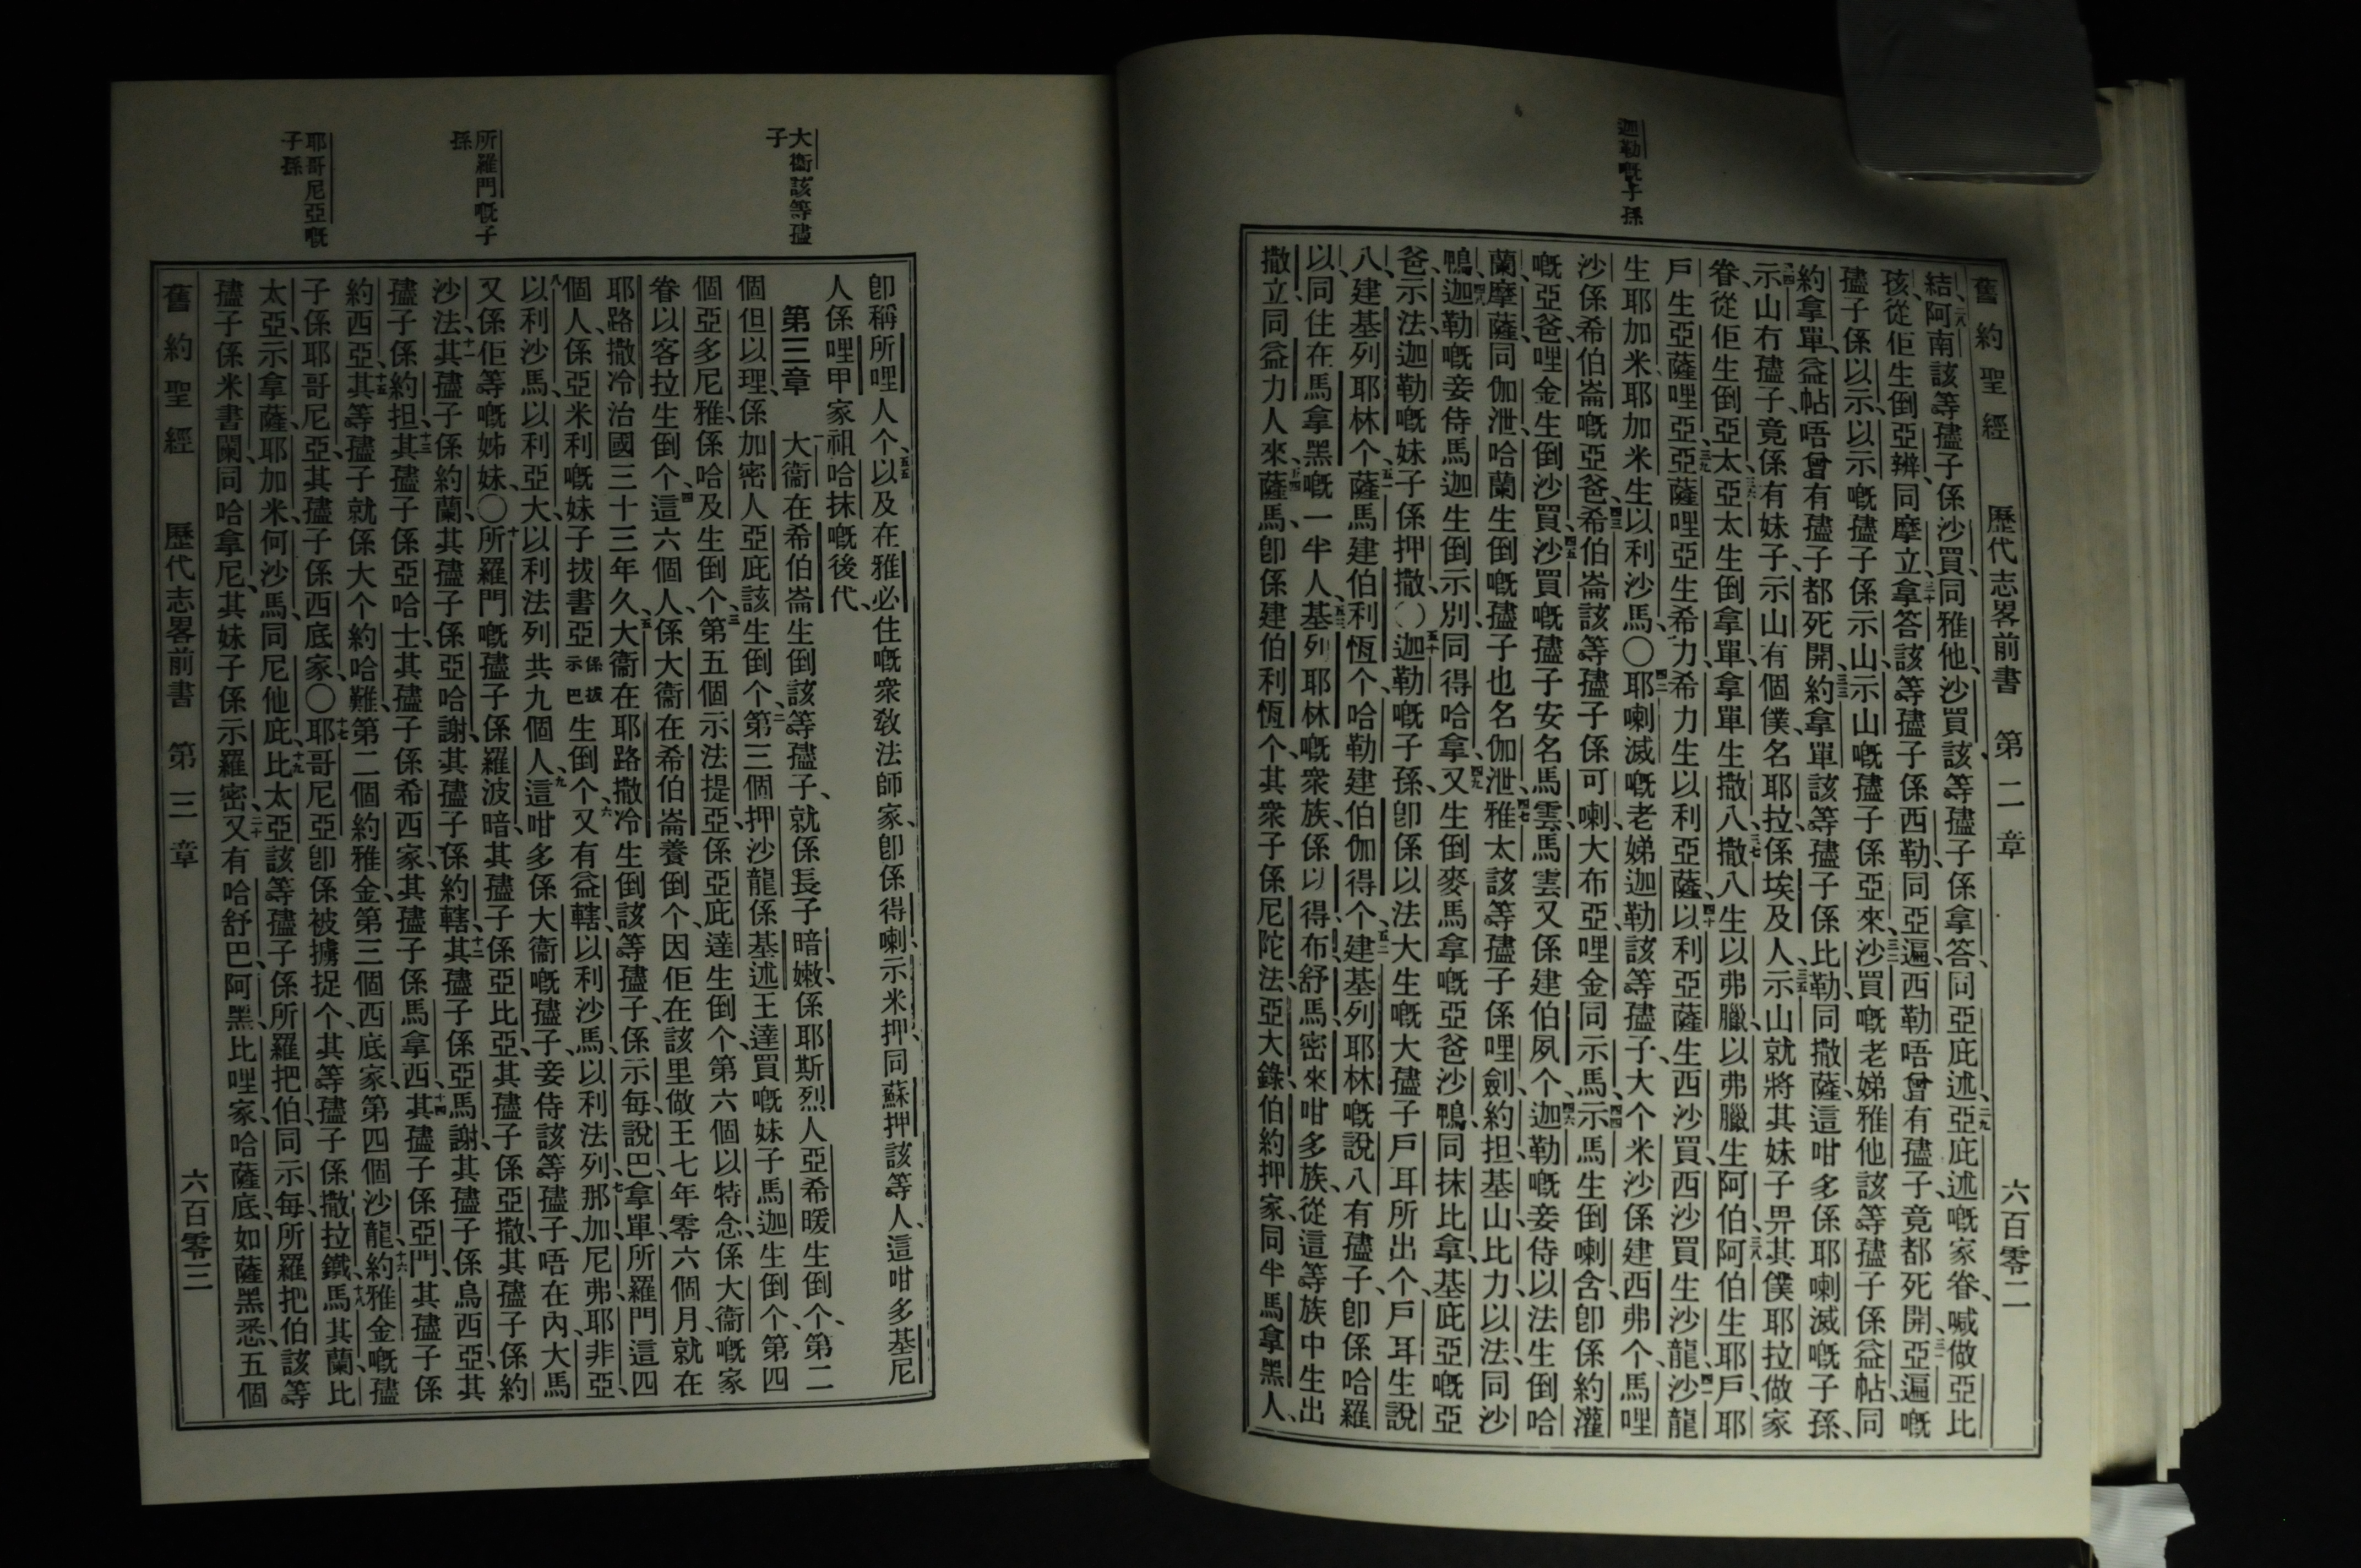 迦勒嘅子孫
舊約聖經 歷代志畧前書 第二章 六百零二
結、二八阿南該等孻子係沙買、同雅他、沙買該等孻子係拿答、同亞庇述、二九亞庇述嘅家眷、喊做亞比
孩、從佢生倒亞辨、同摩立、三十拿答該等孻子係西勒、同亞遍、西勒唔曾有孻子、竟都死開、三一亞遍嘅
孻子係以示、以示嘅孻子係示山、示山嘅孻子係亞來、三二沙買嘅老娣雅他該等孻子係益帖、同
約拿單、益帖唔曾有孻子都死開、三三約拿單該等孻子係比勒、同撒薩、這咁多係耶喇滅嘅子孫、
三四示山冇孻子、竟係有妹子、示山有個僕、名耶拉、係埃及人、三五示山就將其妹子畀其僕耶拉做家
眷、從佢生倒亞太、三六亞太生倒拿單、拿單生撒八、三七撒八生以弗臘、以弗臘生阿伯、三八阿伯生耶戶、耶
戶生亞薩哩亞、三九亞薩哩亞生希力、希力生以利亞薩、四十以利亞薩生西沙買、西沙買生沙龍、四一沙龍
生耶加米、耶加米生以利沙馬、〇四二耶喇滅嘅老娣迦勒該等孻子、大个米沙係建西弗个、馬哩
沙係希伯崙嘅亞爸、四三希伯崙該等孻子係可喇、大布亞、哩金同示馬、四四示馬生倒喇含卽係約灌
嘅亞爸、哩金生倒沙買、四五沙買嘅孻子安名馬雲、馬雲又係建伯夙个、四六迦勒嘅妾侍以法生倒哈
蘭、摩薩、同伽泄、哈蘭生倒嘅孻子也名伽泄、四七雅太該等孻子係哩劍、約担、基山、比力、以法、同沙
鴨、四八迦勒嘅妾侍馬迦生倒示別、同得哈拿、四九又生倒麥馬拿嘅亞爸沙鴨、同抹比拿、基庇亞嘅亞
爸、示法、迦勒嘅妹子係押撒、〇五十迦勒嘅子孫、卽係以法大生嘅大孻子戶耳所出个、戶耳生說
八、建基列耶林个、五一薩馬建伯利恆个、哈勒建伯伽得个、五二建基列耶林嘅說八有孻子、卽係哈羅
以、同住在馬拿黑嘅一半人、五三基列耶林嘅衆族、係以得、布舒、馬密來咁多族、從這等族中生出
撒立、同益力人來、五四薩馬、卽係建伯利恆个、其衆子係尼陀法、亞大錄、伯約押家、同半馬拿黑人、
大衞該等孻
子
所羅門嘅子
孫
耶哥尼亞嘅
子孫
卽稱所哩人个、五五以及在雅必住嘅衆敎法師家、卽係得喇、示米押、同蘇押該等人、這咁多基尼
人係哩甲家祖哈抹嘅後代、
第三章 一大衞在希伯崙生倒該等孻子、就係長子暗嫩、係耶斯烈人亞希暖生倒个、第二
個但以理、係加密人亞庇該生倒个、二第三個押沙龍係基述王達買嘅妹子馬迦生倒个、第四
個亞多尼雅、係哈及生倒个、三第五個示法提亞、係亞庇達生倒个、第六個以特念、係大衞嘅家
眷以客拉生倒个、四這六個人、係大衞在希伯崙養倒个、因佢在該里做王七年零六個月、就在
耶路撒冷治國三十三年久、五大衞在耶路撒冷生倒該等孻子、係示每、說巴、拿單、所羅門、這四
個人、係亞米利嘅妹子拔書亞係拔示巴生倒个、六又有益轄、以利沙馬、以利法列、七那加、尼弗、耶非亞、
八以利沙馬、以利亞大、以利法列共九個人、九這咁多係大衞嘅孻子、妾侍該等孻子唔在內、大馬
又係佢等嘅姊妹、〇十所羅門嘅孻子係羅波暗、其孻子係亞比亞、其孻子係亞撒、其孻子係約
沙法、十一其孻子係約蘭、其孻子係亞哈謝、其孻子係約轄、十二其孻子係亞馬謝、其孻子係烏西亞、其
孻子係約担、十三其孻子係亞哈士、其孻子係希西家、其孻子係馬拿西、十四其孻子係亞門、其孻子係
約西亞、十五其等孻子就係大个約哈難、第二個約雅金、第三個西底家、第四個沙龍、十六約雅金嘅孻
子係耶哥尼亞、其孻子係西底家、〇十七耶哥尼亞卽係被擄捉个、其等孻子係撒拉鐵、十八馬其蘭、比
太亞、示拿薩、耶加米、何沙馬、同尼他庇、十九比太亞該等孻子係所羅把伯、同示每、所羅把伯該等
孻子係米書闌、同哈拿尼、其妹子係示羅密、二十又有哈舒巴、阿黑、比哩家、哈薩底、如薩黑悉、五個
舊約聖經 歷代志畧前書 第三章 六百零三